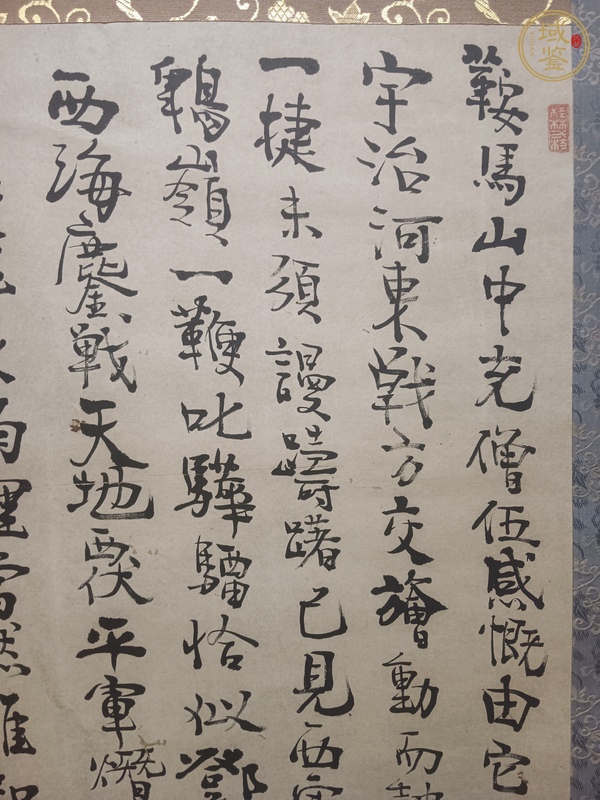 鞍馬山中充僧伍感慨由它
宇治河東戰方交旝動而
一捷未須謾躊躇已見西
鵯嶺一鞭叱驊騮恰似鄧
西海鏖戰天地覆平軍熸
域鉴